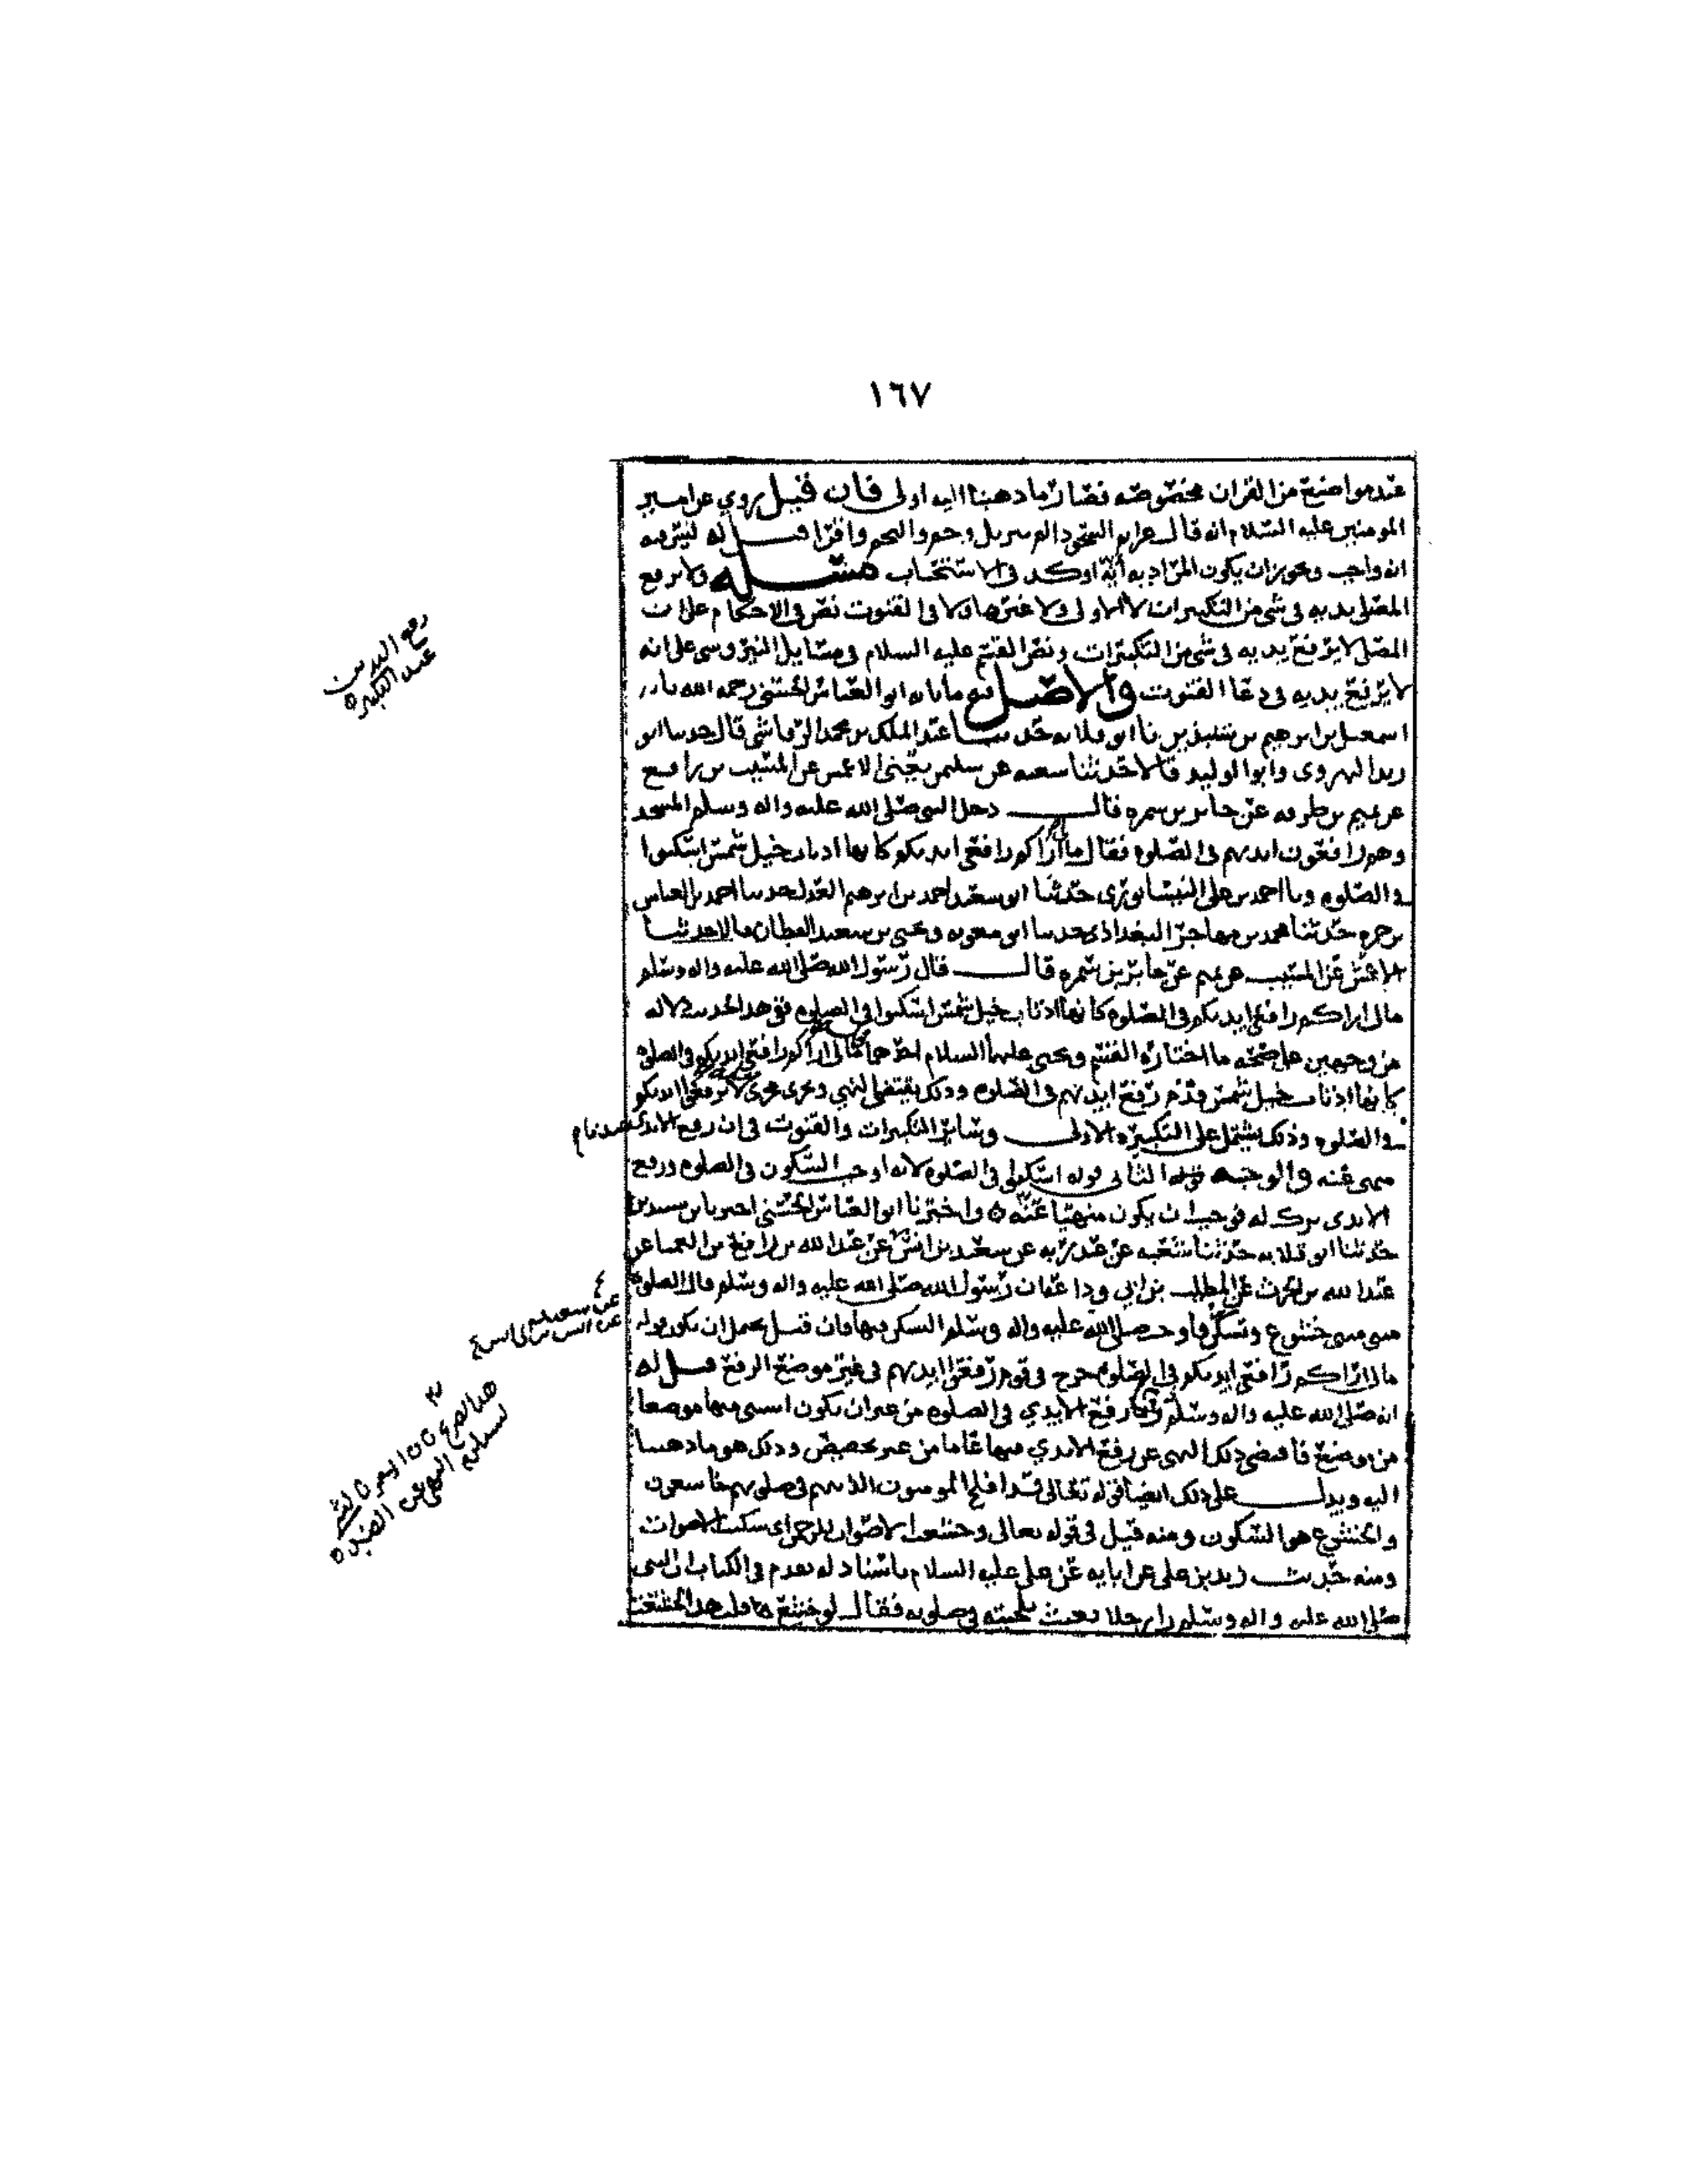 ١٦٧
عند مواضع من القران مخصوصه فصار ما ذهبنا اليه اولى فان قيل روي عن امير
المومنين عليه السلام انه قال عزايم السجود الم تنزيل وحم والنجم واقرا قيل له ليس فيه
انه واجب ويجوز ان يكون المراد به انه اوكد في الاستحباب مسئله ولا يرفع
المصلي يديه في شي من التكبيرات لا الاولى ولا غيرها ولا في القنوت نص في الاحكام على ان
المصلي لا يرفع يديه في شي من التكبيرات ونص القسم عليه السلام في مسايل النيروسي على انه
لا يرفع يديه في دعا القنوت والاصل فيه ما نا به ابو العباس الحسني رحمه الله نا
اسمعيل بن ابرهيم بن شنبذين نا ابو قلابه حدثنا عبد الملك بن محمد الرقاشي قال حدثنا ابو
زيد الهروي وابو الوليد قالا حدثنا شعبه عن سليمن يعني الاعمش عن المسيب بن رافع
عن تميم بن طرفه عن جابر بن سمره قال دخل النبي صلى الله عليه واله وسلم المسجد
وهم رافعون ايديهم في الصلوه فقال مالي اراكم رافعي ايديكم كانها اذناب خيل شمس اسكنوا
في الصلوه ونا احمد بن علي النيسابوري حدثنا ابو سعيد احمد بن ابرهيم العدل حدثنا احمد بن العباس
بن حمزه حدثنا محمد بن مهاجر البغداذي حدثنا ابو معويه ويحيى بن سعيد القطان قالا حدثنا
الاعمش عن المسيب عن تميم عن جابر بن سمره قال قال رسول الله صلى الله عليه واله وسلم
مالي اراكم رافعي ايديكم في الصلوه كانها اذناب خيل شمس اسكنوا في الصلوه ففي هذا الحديث دلاله
من وجهين على صحه ما اختاره القسم ويحيى عليهما السلام احدهما مالي اراكم رافعي ايديكم في الصلوه
كانها اذناب خيل شمس فذم رفع ايديهم في الصلوه وذلك يقتضي النهي وجرى مجرى لا ترفعوا ايديكم
في الصلوه وذلك يشتمل على التكبيره الاولى وسائر التكبيرات والقنوت في ان رفع الايدي عندنا
منهي عنه والوجه الثاني قوله اسكنوا في الصلوه لانه اوجب السكون في الصلوه ورفع
الايدي ترك له فوجب ان يكون منهيا عنه ه واخبرنا ابو العباس الحسني اخبرنا بن شنبذين
حدثنا ابو قلابه حدثنا شعبه عن عبد ربه عن سعيد بن انس عن عبد الله بن رافع بن العميا عن
عبد الله بن الحرث عن المطلب بن ابي وداعه ان رسول الله صلى الله عليه واله وسلم قال الصلوه
مثنى مثنى خشوع وتسكن فاوجب صلى الله عليه واله وسلم السكن فيها فان قيل يحتمل ان يكون قوله
مالي اراكم رافعي ايديكم في الصلوه خرج في قوم رفعوا ايديهم في غير موضع الرفع قيل له
انه صلى الله عليه واله وسلم رفع الايدي في الصلوه من غير ان يكون استثنى منها موضعا
من موضع فاقتضى ذلك النهي عن رفع الايدي فيها عاما من غير تخصيص وذلك هو ما ذهبنا
اليه ويدل على ذلك ايضا قوله تعالى قد افلح المومنون الذين هم في صلوتهم خاشعون
والخشوع هو السكون ومنه قيل في قوله تعالى وخشعت الاصوات للرحمن اي سكنت الاصوات
ومنه حديث زيد بن علي عن ابايه عن علي عليه السلام باسناد له تقدم في الكتاب ان النبي
صلى الله عليه واله وسلم راى رجلا يعبث بلحيته في صلوته فقال لو خشع قلب هذا لخشعت
رفع اليدين
عند التكبيره
عن سعيد
عن انس بن ابي انسة